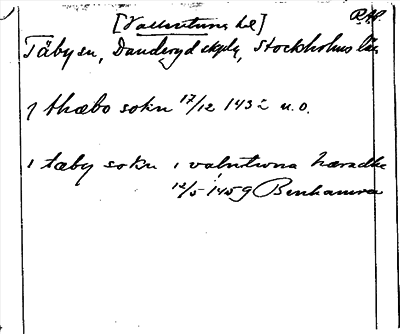 [Vallentuna hd] RAP.
Täby sn, Danderyd skplg, Stockholms län
J thæbo sokn 17/12 1432 u.o.
i tæby sokn i valntuna hæradhe
12/5 1459 Benhamra